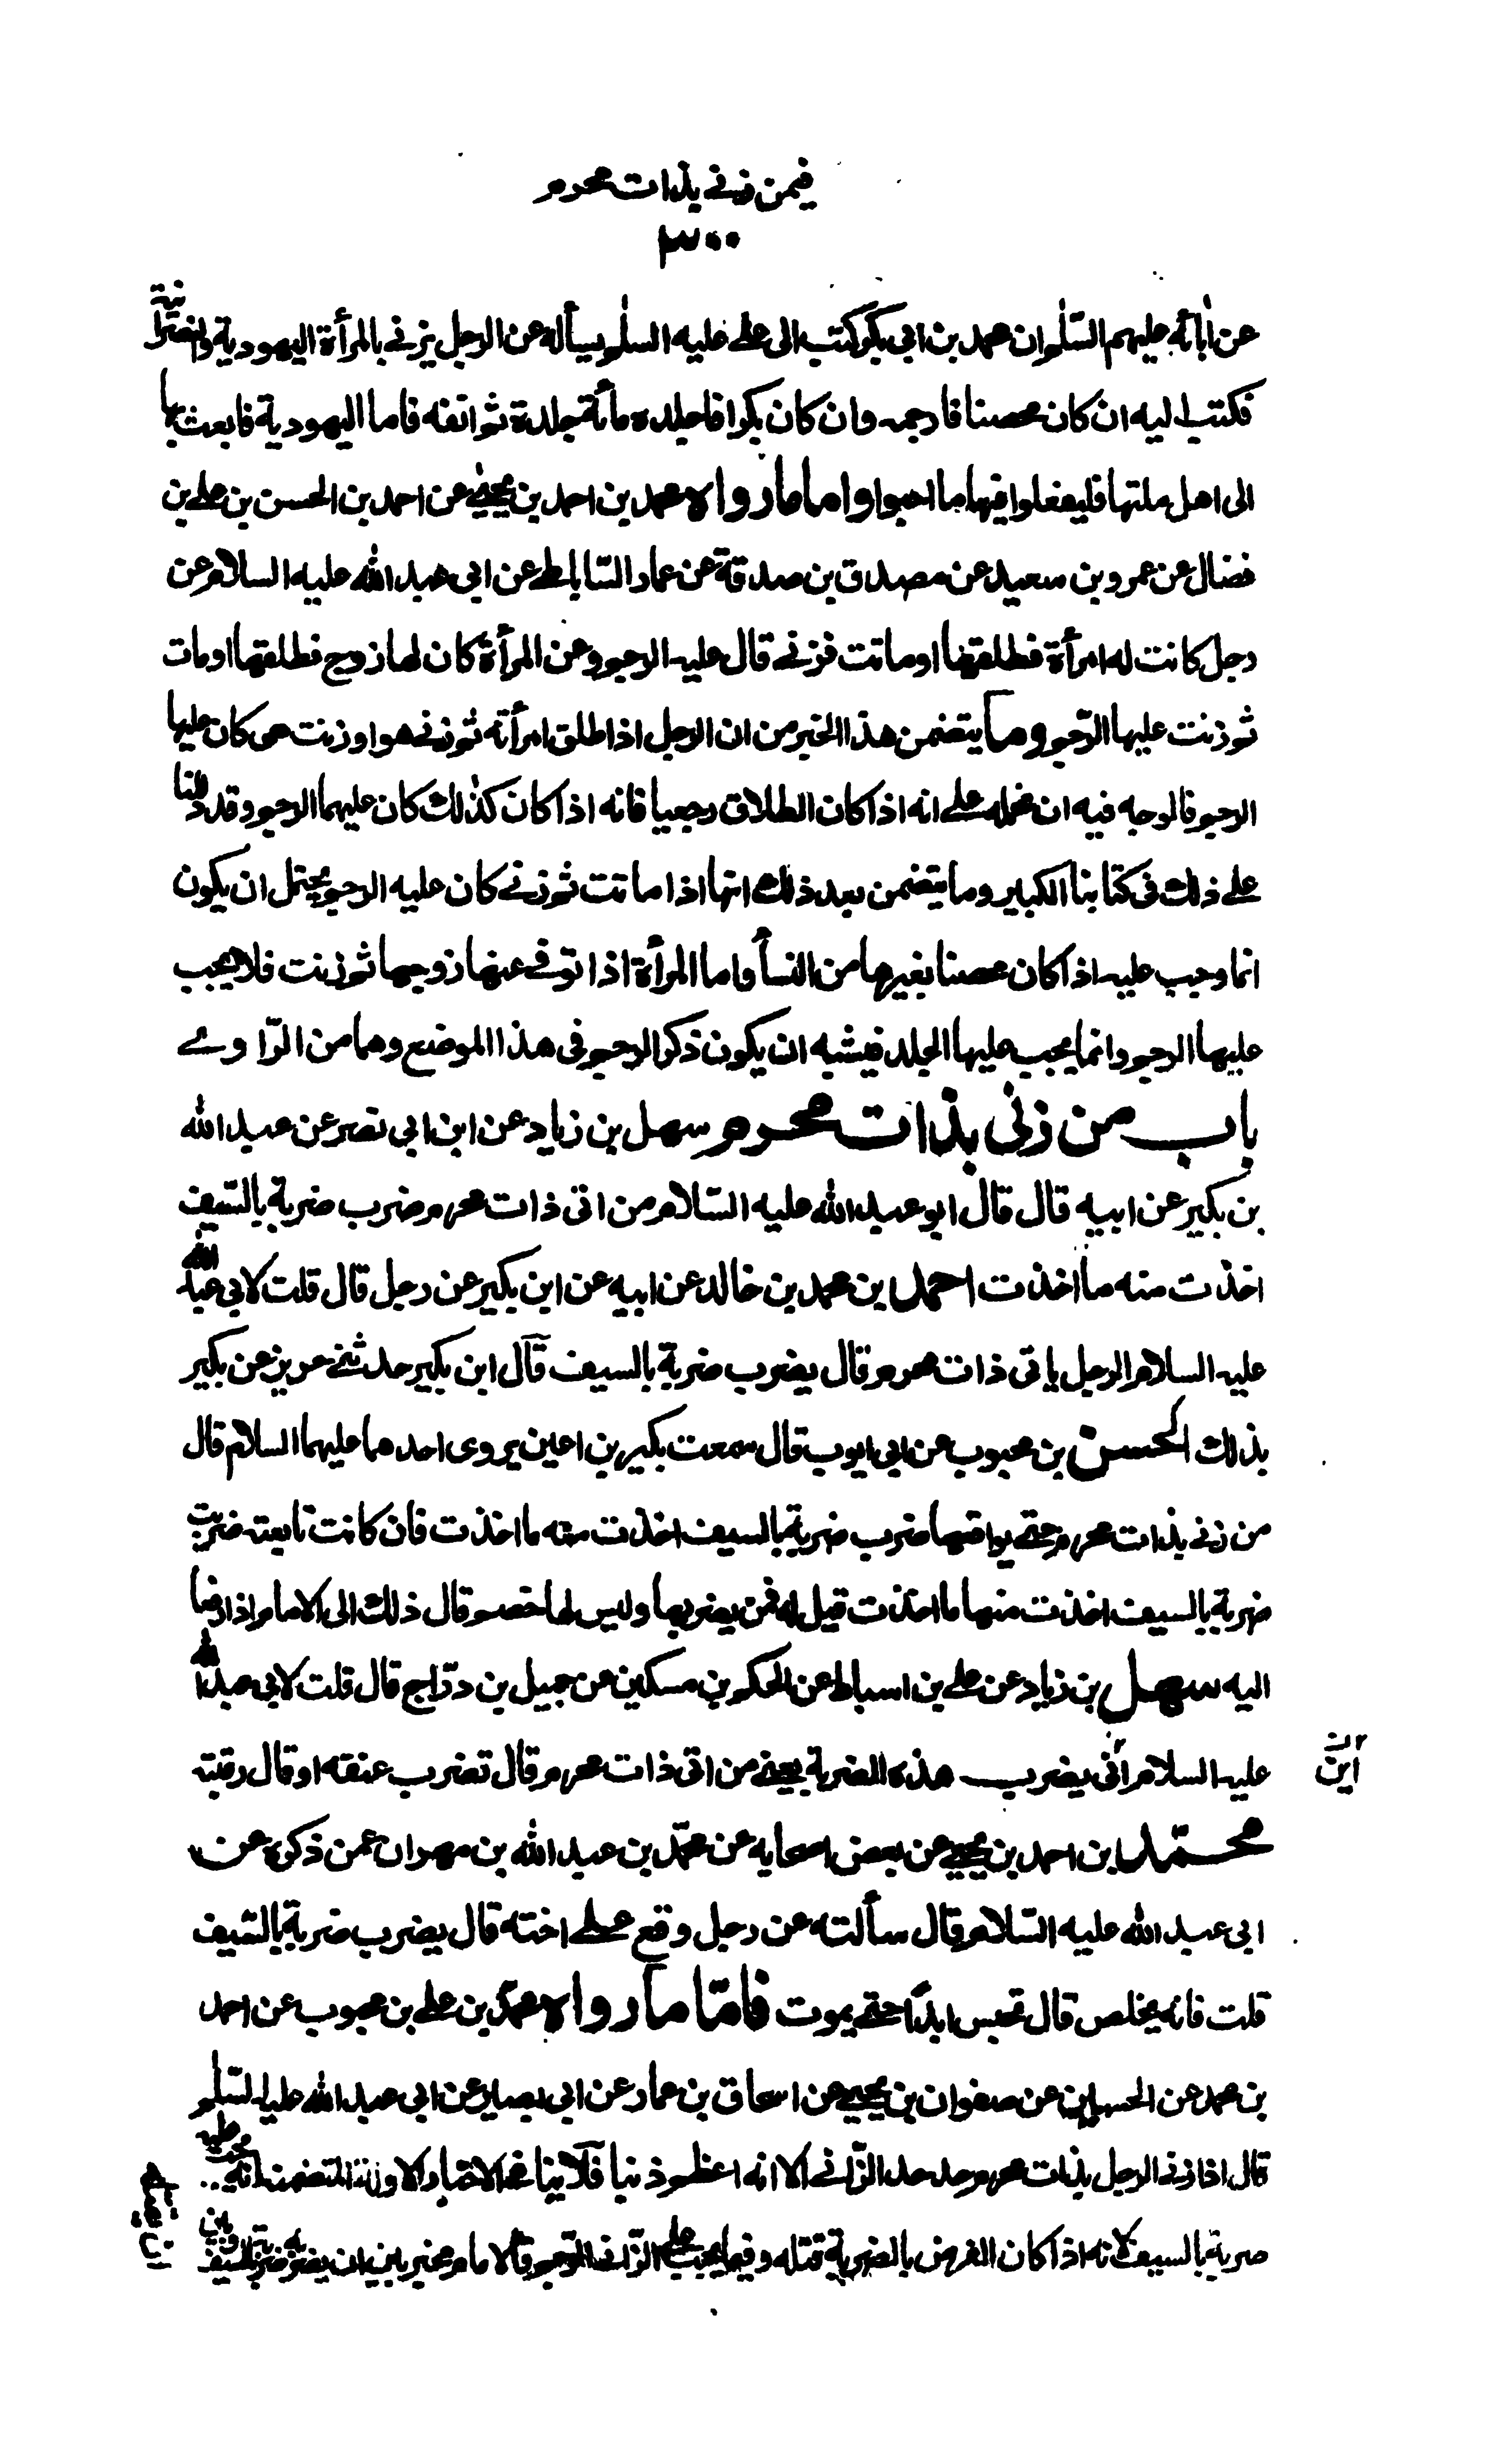 فيمن زنى بذات محرم
٣٠٠
عن اٰبائه عليهم السّلٰم ان محمد بن ابي بكر كتب الى علے عليه السلٰم يسأله عن الرجل يزنے بالمرأة اليهودية والنصرانية
فكتب اليه ان كان محصنا فارجمه وان كان بكرا فاجلده مائة جلدة ثم انفه فاما اليهودية فابعث بها
الى اهل ملتها فليفعلوا فيها ما احبوا واما ما رواه محمد بن احمد بن يحيٰے عن احمد بن الحسن بن علے بن
فضال عن عمرو بن سعيد عن مصدق بن صدقة عن عمار السّاباطے عن ابى عبد الله عليه السلام عن
رجل كانت له امرأة فطلقها او ماتت فزنے قال عليه الرجم وعن المرأة كان لها زوج فطلقها او مات
ثم زنت عليها الرّجم وما يتضمن هذا الخبر من ان الرجل اذا طلق امرأته ثم زنے هو او زنت هى كان عليها
الرجم فالوجه فيه ان نحمله علے انه اذا كان الطلاق رجعيا فانه اذا كان كذٰلك كان عليهما الرجم وقد دللنا
علے ذلك فى كتابنا الكبير وما يتضمن بعد ذلك انها اذا ماتت ثم زنے كان عليه الرجم يحتمل ان يكون
انما وجب عليه اذا كان محصنا بغيرها من النسأ واما المرأة اذا توفے عنها زوجها ثم زنت فلا يجب
عليها الرجم وانما يجب عليها الجلد فيشبه ان يكون ذكر الرجم فى هذا الموضع وهما من الرّاوے
باب من زنى بذات محرم سهل بن زياد عن ابن ابي نصر عن عبد الله
بن بكير عن ابيه قال قال ابو عبد الله عليه السّلام من اتى ذات محرم ضرب ضربة بالسّيف
اخذت منه ما اخذت احمد ابن محمد بن خالد عن ابيه عن ابن بكير عن رجل قال قلت لابي عبد الله
عليه السلام الرجل ياتى ذات محرم قال يضرب ضربة بالسيف قال ابن بكير حدثنے حريز عن بكير
بذلك الحسن بن محبوب عن ابى ايوب قال سمعت بكير بن اعين يروى احدهما عليهما السلام قال
من زنے بذات محرم حتے يواقعها ضرب ضربة بالسيف اخذت منه ما اخذت فان كانت تابعته ضربت
ضربة بالسيف اخذت منها ما اخذت قيل له فمن يضربها وليس لها خصم قال ذلك الى الامام اذا رفعا
اليه سهل بن زياد عن علے بن اسباط عن الحكم بن مسكين عن جميل بن درّاج قال قلت لابي عبد الله
عليه السلام انى يضرب هذه الضربة يعنے من اتى ذات محرم قال تضرب عنقه او قال رقبته
اين
محمّد ابن احمد بن يحيے عن بعض اصحابه عن محمّد بن عبد الله بن مهران عمن ذكره عن
ابى عبد الله عليه السّلام قال سألته عن رجل وقع علے اخته قال يضرب ضربة بالسّيف
قلت فانه يخلص قال تحبس ابدًا حتے يموت فامّا ما رواه محمّد بن علے بن محبوب عن احمد
بن محمد عن الحسين عن صفوان بن يحيے عن اسحاق بن عمار عن ابى بصير عن ابى عبد الله عليه السّلٰم
قال اذا زنے الرجل بذات محرم حد حد الزّانے الا انه اعظم ذنبا فلا ينافے الاخبار الاولة المتضمنة انه يجب عليه
ضربة بالسيف لانه اذا كان الغرض بالضربة قتله وفيما يجب علے الزّانے الرّجم فالامام مخير بين ان يضربه ضربة بالسيف وبين